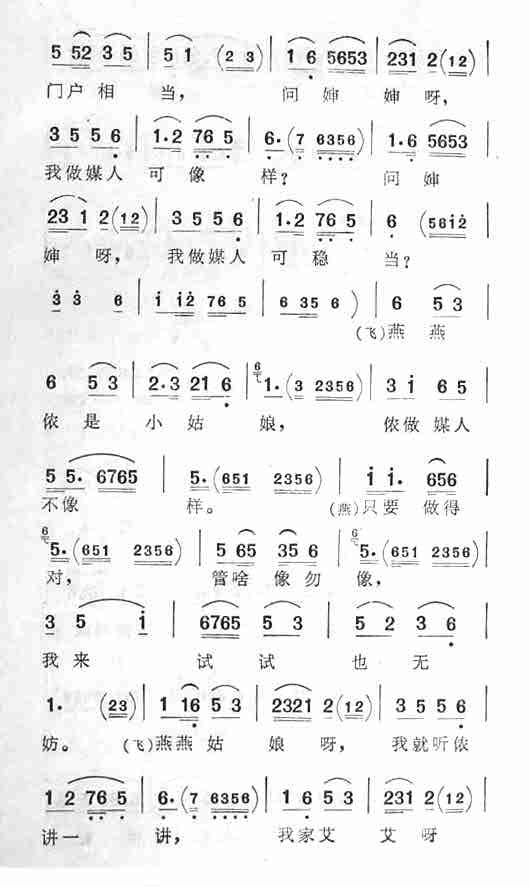 5 52 3 5 | 5 1 (2 3) | 1 6 5653 | 231 2(12) |
门户相 当, 问 婶 婶呀,
3 5 5 6 | 1·2 76 5 | 6·(7 6356) | 1·6 5653 |
我做媒人 可像 样? 问 婶
23 1 2(12) | 3 5 5 6 | 1·2 76 5 | 6 (5612 |
婶 呀, 我做媒人 可 稳 当?
3 3 6 | 1 12 76 5 | 6 35 6 ) | 6 5 3 |
(飞)燕 燕
6 5 3 | 2·3 21 6 | 1·(3 2356) | 3 1 6 5 |
侬 是 小 姑 娘, 侬做 媒人
5 5· 6765 | 5·(651 2356) | 1 1· 656 |
不像 样。 (燕)只要 做得
5·(651 2356) | 5 65 35 6 | 5·(651 2356) |
对, 管啥 像 勿 像,
3 5 1 | 6765 5 3 | 5 2 3 6 |
我 来 试 试 也 无
1· (23) | 1 16 5 3 | 2321 2(12) | 3 5 5 6 |
妨。 (飞)燕燕 姑 娘 呀, 我就听侬
1 2 76 5 | 6·(7 6356) | 1 6 5 3 | 231 2(12) |
讲一 讲, 我家艾 艾 呀